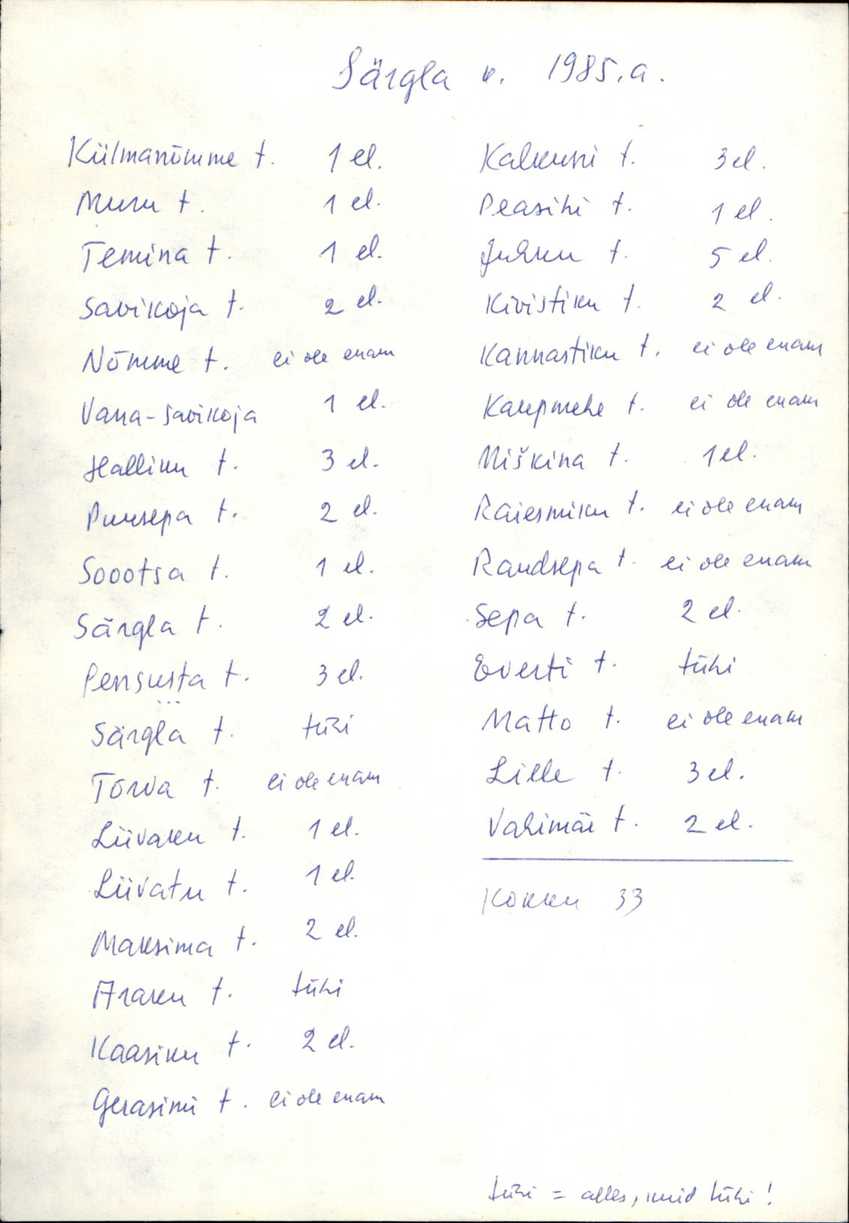 Särgla k. 1985.a.
Külmanõmme t. 1 el.
Muru t. 1 el.
Temina t. 1 el.
Savikoja t. 2 el.
Nõmme t. ei ole enam
Vana-Savikoja 1 el.
Halliku t. 3 el.
Puusepa t. 2 el.
Soootsa t. 1 el.
Särgla t. 2 el.
Pensusta t. 3 el.
Särgla t. tühi
Tõrva t. ei ole enam
Liivaku t. 1 el.
Liivatu t. 1 el.
Maksima t. 2 el.
Araku t. tühi
Kaasiku t. 2 el.
Gerasimi t. ei ole enam
Kalkuni t. 3 el.
Peasihi t. 1 el.
Juhku t. 5 el.
Kivistiku t. 2 el.
Kannastiku t. ei ole enam
Kaupmehe t. ei ole enam
Miškina t. 1 el.
Raiesmiku t. ei ole enam
Raudsepa t. ei ole enam
Sepa t. 2 el.
Everti t. tühi
Matto t. ei ole enam
Lille t. 3 el.
Vahimäe t. 2 el.
Kokku 33
tühi = alles, kuid tühi!